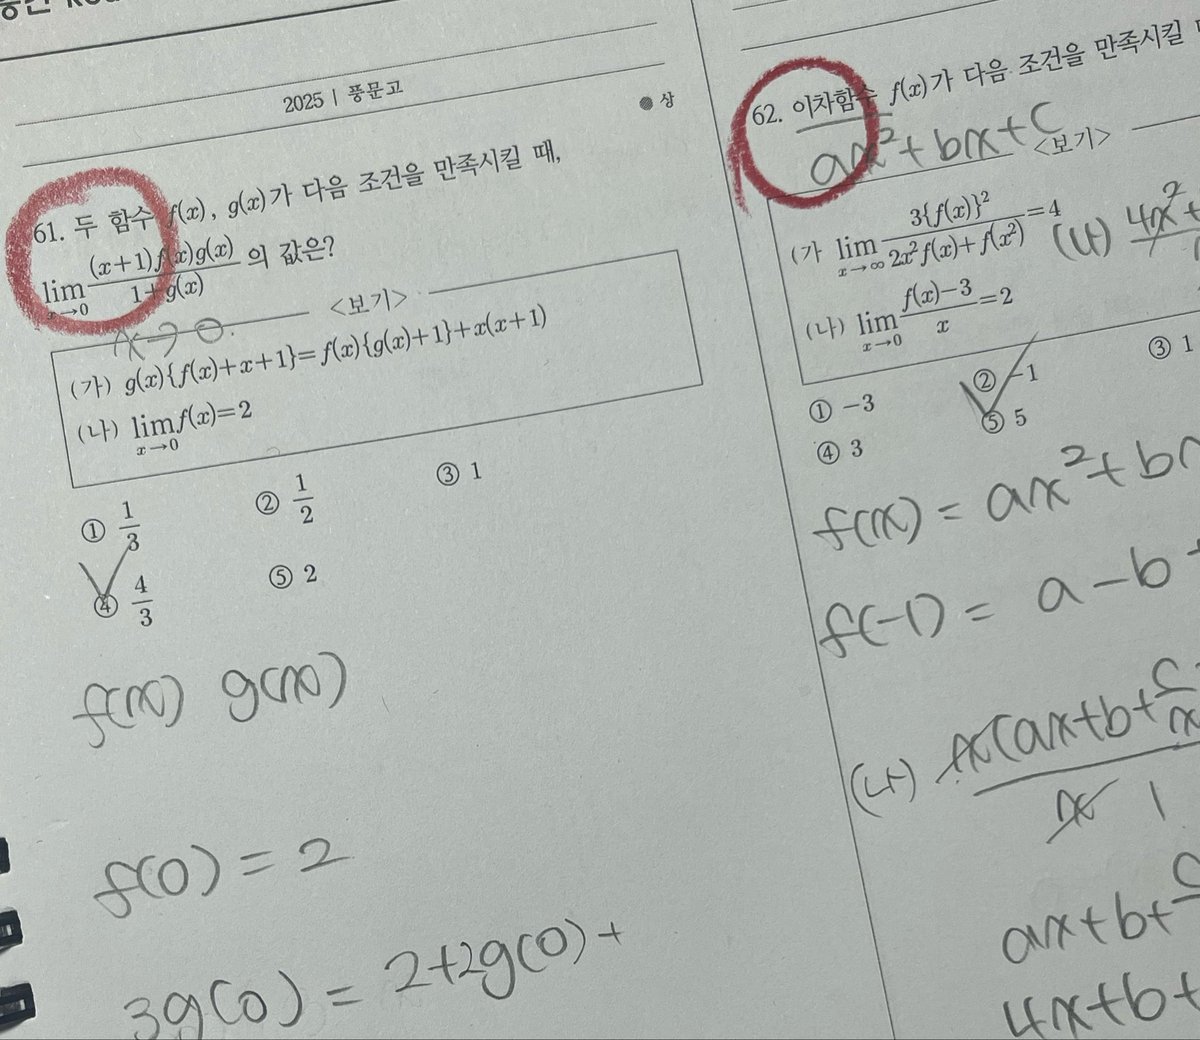 2025 | 풍문고
● 상
61. 두 함수 f(x), g(x)가 다음 조건을 만족시킬 때,
lim x→0 (x+1)f(x)g(x) / 1+g(x) 의 값은?
x→0.
<보기>
(가) g(x){f(x)+x+1}=f(x){g(x)+1}+x(x+1)
(나) lim x→0 f(x)=2
① 1/3
② 1/2
③ 1
④ 4/3
⑤ 2
f(x) g(x)
f(0) = 2
3g(0) = 2+2g(0)+
62. 이차함수 f(x)가 다음 조건을 만족시킬
ax²+bx+c
<보기>
(가 lim x→∞ 3{f(x)}² / 2x²f(x)+f(x²) =4
(나) 4x²+
(나) lim x→0 f(x)-3 / x =2
① -3
② -1
③ 1
④ 3
⑤ 5
f(x) = ax²+bx
f(-1) = a-b+
(나) x(ax+b+c/x / x 1
ax+b+c
4x+b+